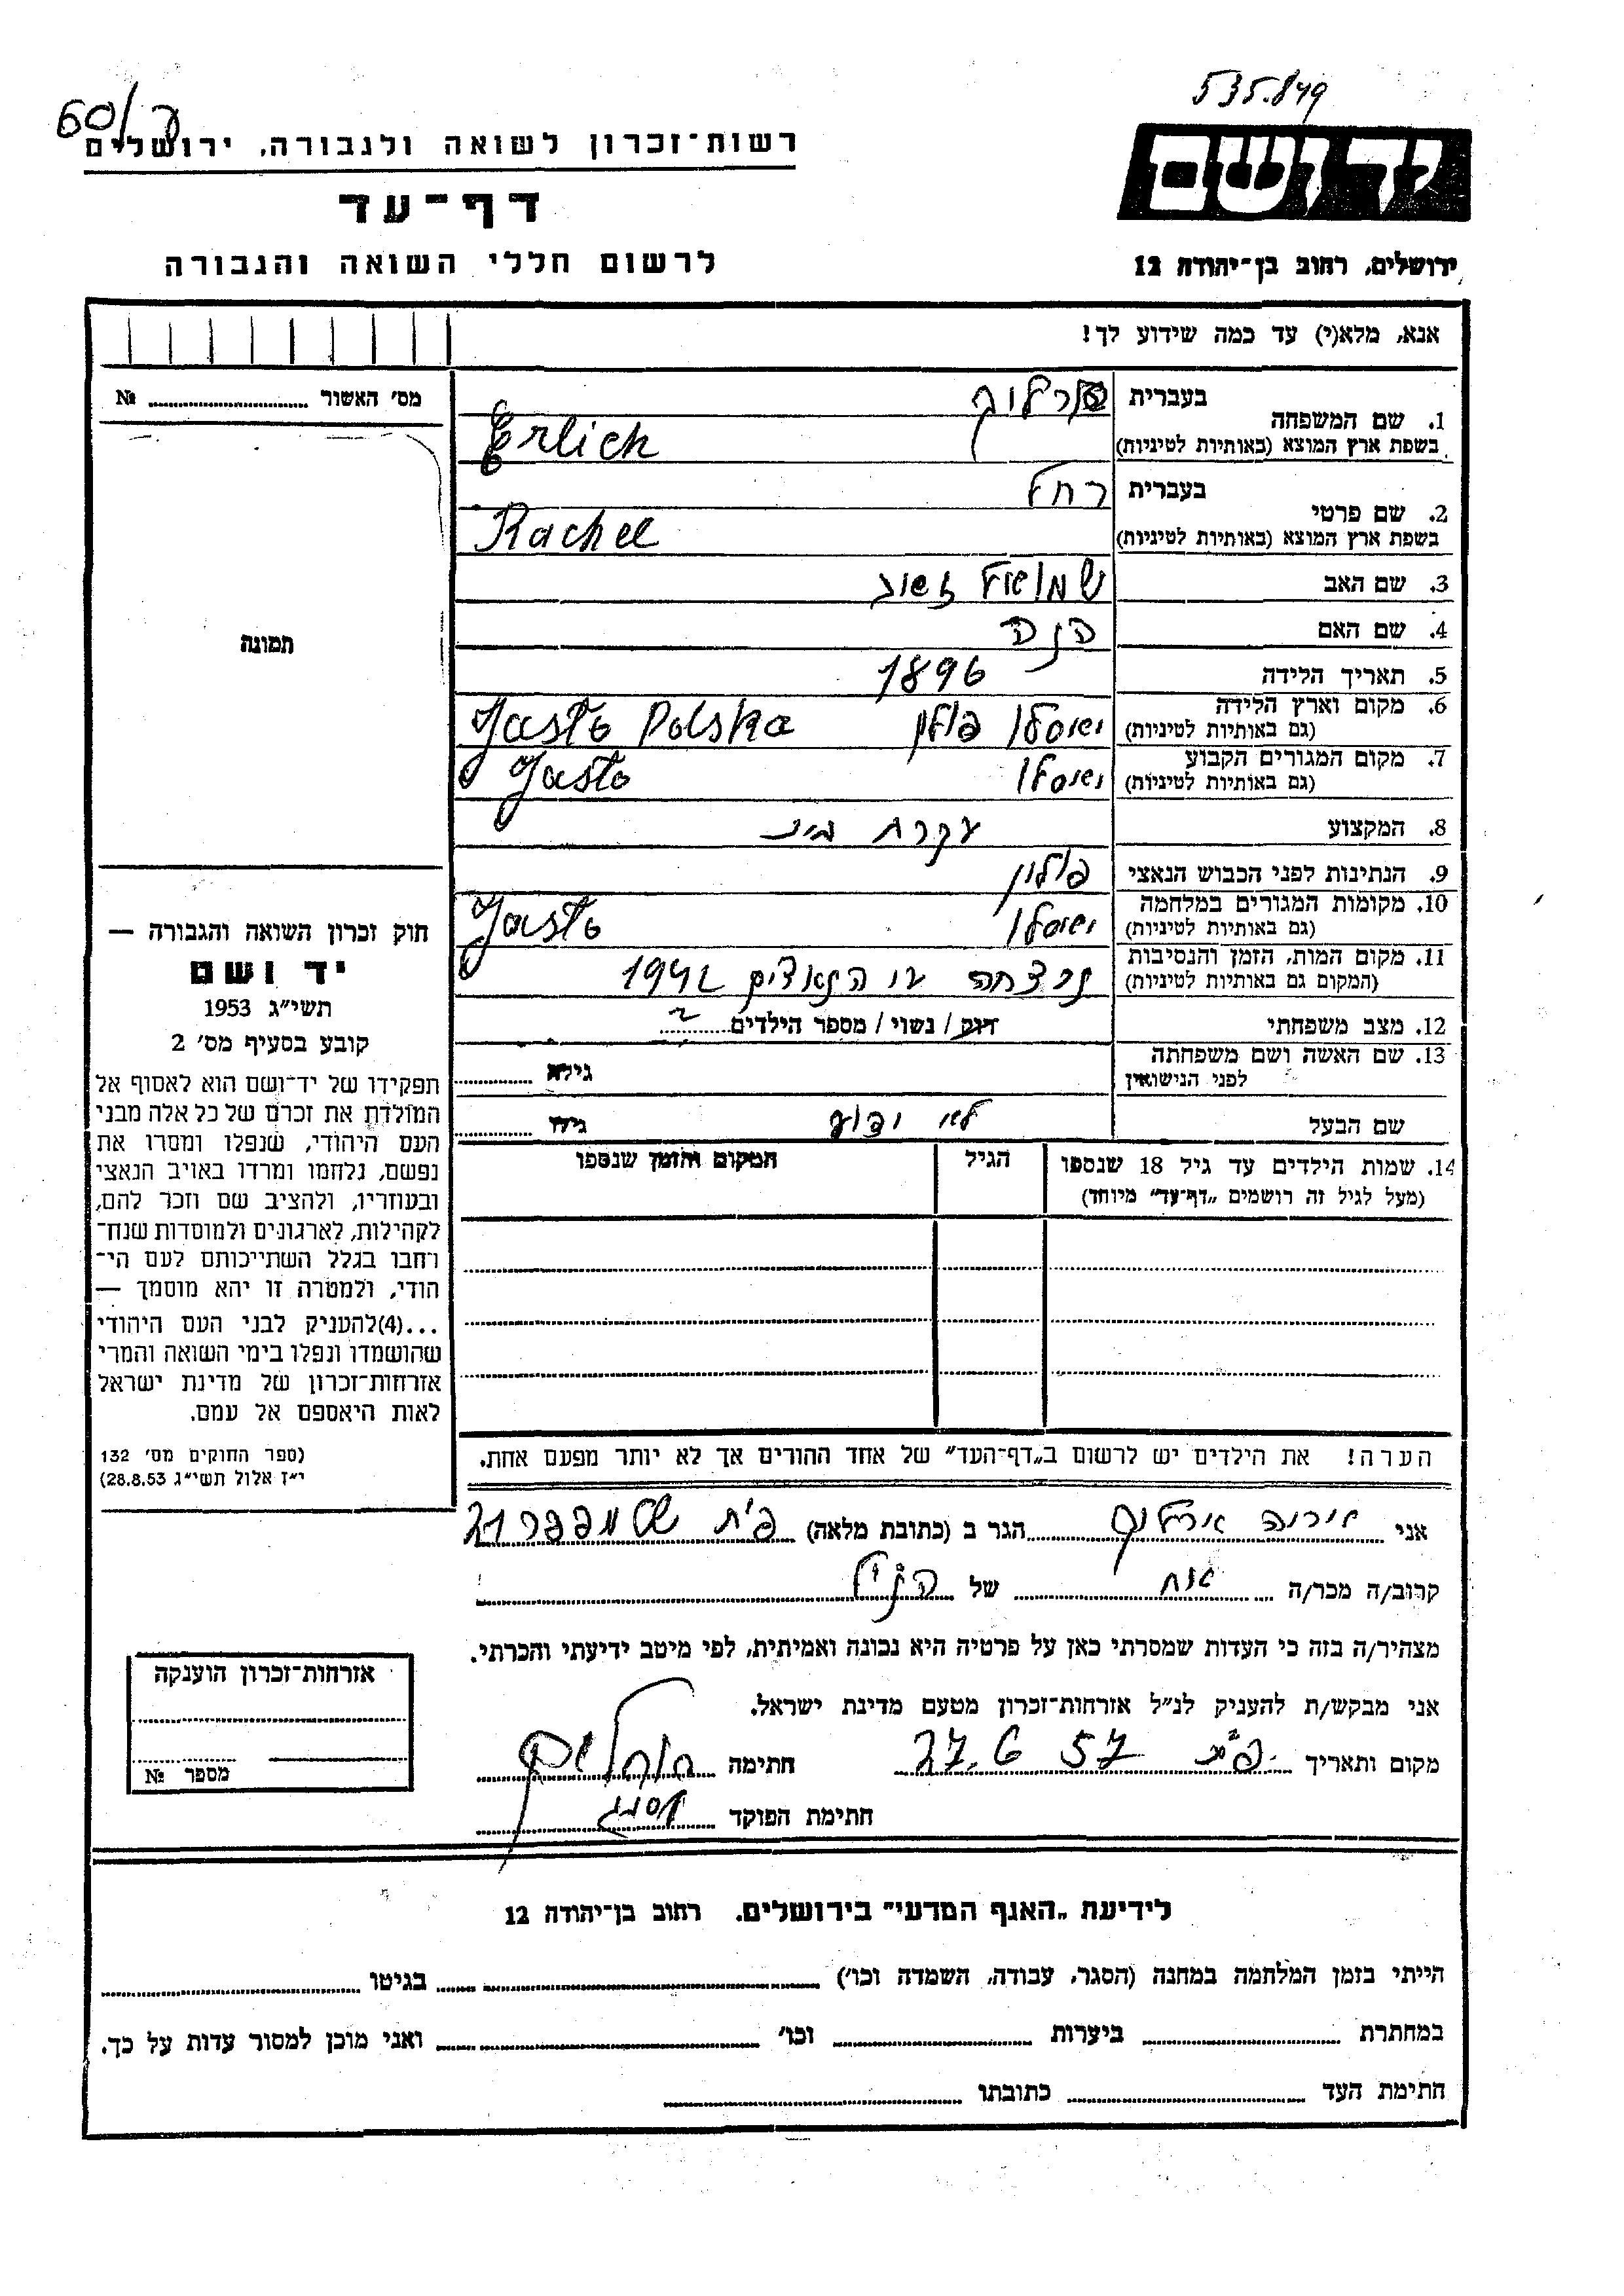 535.849
60/ע
יד ושם
רשות־זכרון לשואה ולגבורה, ירושלים
דף־עד
לרשום חללי השואה והגבורה
ירושלים, רחוב בן־יהודה 12
אנא, מלא(י) עד כמה שידוע לך!
מס׳ האשור № 
1. שם המשפחה
בעברית ארליך
בשפת ארץ המוצא (באותיות לטיניות) Erlich
2. שם פרטי
בעברית רחל
בשפת ארץ המוצא (באותיות לטיניות) Rachel
3. שם האב שמואל
4. שם האם
5. תאריך הלידה 1896
6. מקום וארץ הלידה
(גם באותיות לטיניות) יאסלו פולין Jasło Polska
7. מקום המגורים הקבוע
(גם באותיות לטיניות) יאסלו Jasło
8. המקצוע עקרת בית
9. הנתינות לפני הכבוש הנאצי פולין
10. מקומות המגורים במלחמה
(גם באותיות לטיניות) יאסלו Jasło
11. מקום המות, הזמן והנסיבות
(המקום גם באותיות לטיניות) נרצחה ע״י הנאצים 1942
12. מצב משפחתי רווק / נשוי / מספר הילדים
13. שם האשה ושם משפחתה
לפני הנישואין גילה
שם הבעל לא ידוע גילו
14. שמות הילדים עד גיל 18 שנספו
(מעל לגיל זה רושמים „דף־עד״ מיוחד)
הגיל
המקום והזמן שנספו
הערה! את הילדים יש לרשום ב„דף־העד״ של אחד ההורים אך לא יותר מפעם אחת.
תמונה
חוק זכרון השואה והגבורה —
יד ושם
תשי״ג 1953
קובע בסעיף מס׳ 2
תפקידו של יד־ושם הוא לאסוף אל
המולדת את זכרם של כל אלה מבני
העם היהודי, שנפלו ומסרו את
נפשם, נלחמו ומרדו באויב הנאצי
ובעוזריו, ולהציב שם וזכר להם,
לקהילות, לארגונים ולמוסדות שנח־
רחבו בגלל השתייכותם לעם הי־
הודי, ולמטרה זו יהא מוסמך —
...(4)להעניק לבני העם היהודי
שהושמדו ונפלו בימי השואה והמרי
אזרחות־זכרון של מדינת ישראל
לאות היאספם אל עמם.
(ספר החוקים מס׳ 132
י״ז אלול תשי״ג 28.8.53)
אני ארליך הגר ב (כתובת מלאה) פ״ת שטמפפר 21
קרוב/ה מכר/ה אח של הנ״ל
מצהיר/ה בזה כי העדות שמסרתי כאן על פרטיה היא נכונה ואמיתית, לפי מיטב ידיעתי והכרתי.
אני מבקש/ת להעניק לנ״ל אזרחות־זכרון מטעם מדינת ישראל.
מקום ותאריך פ״ת 27.6 57 חתימה
חתימת הפוקד
אזרחות־זכרון הוענקה
מספר №
לידיעת „האגף המדעי״ בירושלים. רחוב בן־יהודה 12
הייתי בזמן המלחמה במחנה (הסגר, עבודה, השמדה וכו׳) בגיטו
במחתרת ביערות וכו׳ ואני מוכן למסור עדות על כך.
חתימת העד כתובתו